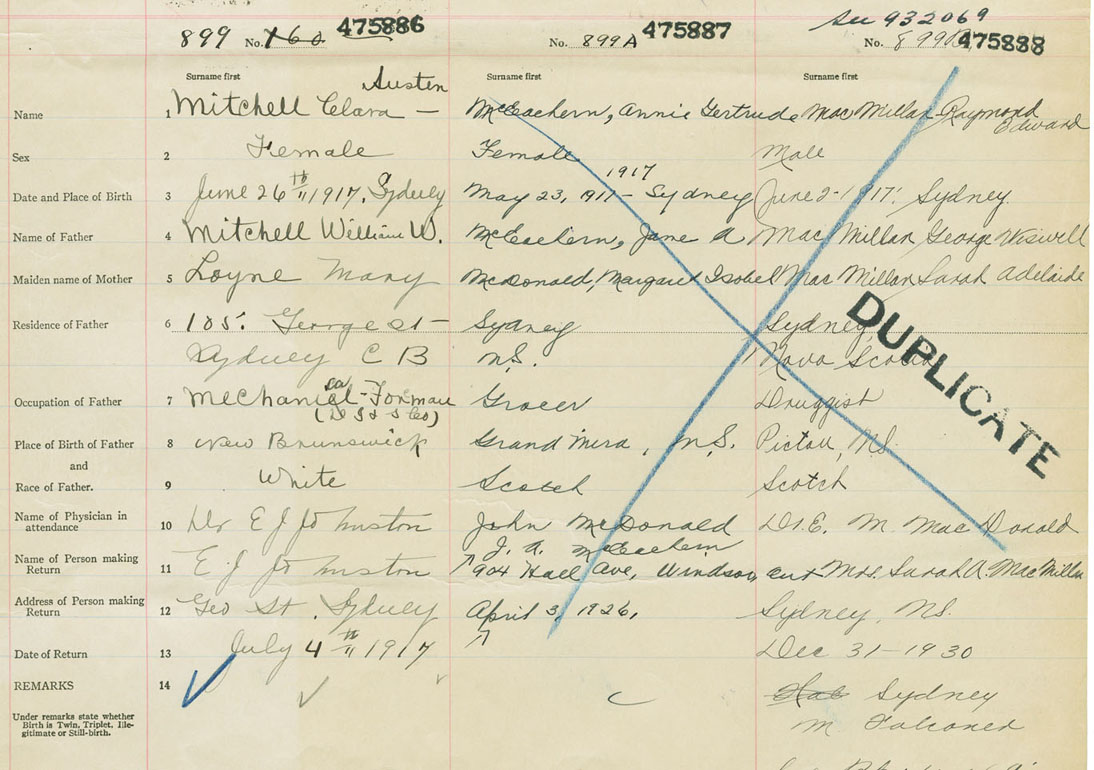 899 No. 160 475886
No. 899A 475887
See 932069
No. 899B 475888
Surname first
Surname first
Surname first
Name 1 Mitchell Clara Austen —
McEachern, Annie Gertrude
MacMillan Raymond Edward
Sex 2 Female
Female
Male
Date and Place of Birth 3 June 26th 1917, Sydney
May 23, 1911 1917 – Sydney
June 2-1917. Sydney.
Name of Father 4 Mitchell William W.
McEachern, Jame A
MacMillan George Wiswell
Maiden name of Mother 5 Loyne Mary
McDonald, Margaret Isobel
MacMillan Sarah Adelaide
Residence of Father 6 185. George St –
Sydney C B
Sydney
N.S.
Sydney
Nova Scotia
Occupation of Father 7 Mechanical – Forman
(D I & S Co)
Grocer
Druggist
Place of Birth of Father 8 New Brunswick
Grand Mira, N.S.
Pictou, N.S.
and
Race of Father. 9 White
Scotch
Scotch
Name of Physician in attendance 10 Dr E J Johnston
John McDonald
Dr. E. M. MacDonald
Name of Person making Return 11 E. J Johnston
J. A. McEachern
904 Hall Ave, Windsor, Ont
Mrs. Sarah A. MacMillan
Address of Person making Return 12 Geo St. Sydney
April 3, 1926,
Sydney, N.S.
Date of Return 13 July 4th 1917
Dec 31-1930
REMARKS 14
Sydney
M Falconer
Under remarks state whether
Birth is Twin, Triplet, Ille-
gitimate or Still-birth.
DUPLICATE